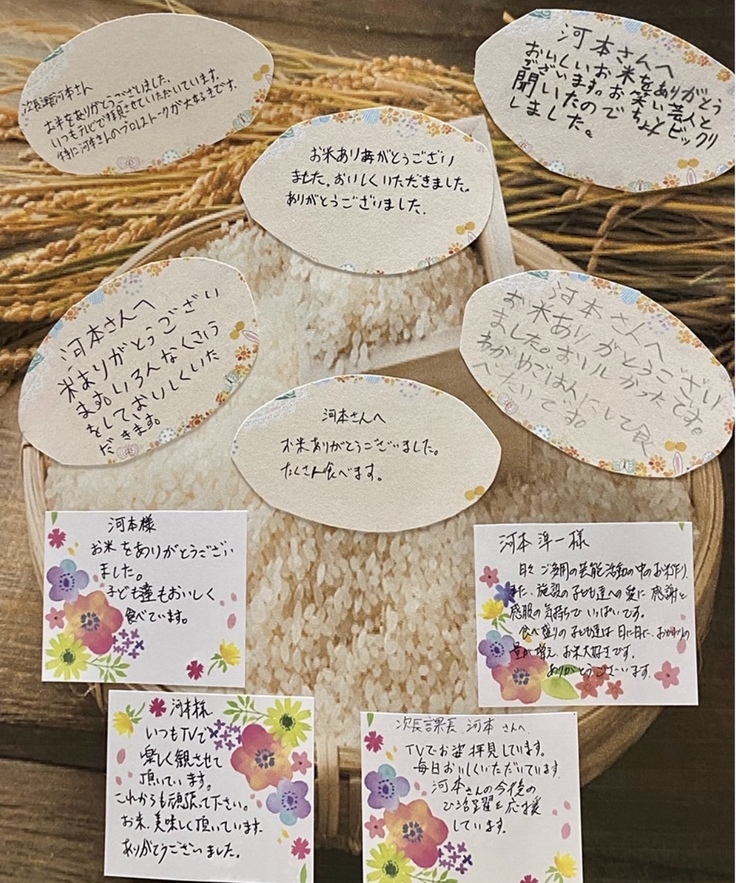 次長課長河本さん
お米をありがとうございました。
いつもテレビで拝見させていただいています。
特に河本さんのプロ1ストークが大好きです。
河本さんへ
おいしいお米をありがとう
ございます。お笑い芸人と
聞いたのでちょとビックリ
しました。
お米ありがとうござい
ました。おいしくいただきました。
ありがとうございました。
河本さんへ
米ありがとうござい
ます。いろんなくふう
をしておいしくいた
だきます。
河本さんへ
お米ありがとうござい
ました。おいしかったです。
わかめごはんにして食
べたいです。
河本さんへ
お米ありがとうございました。
たくさん食べます。
河本様
お米をありがとうござい
ました。
子ども達もおいしく
食べています。
河本準一様
日々ご多用の芸能活動の中のお米作り、
また、施設の子ども達への愛に感謝と
感服の気持ちでいっぱいです。
食べ盛りの子ども達は日に日に、おかわりの
量が増え、お米大好きです。
ありがとうございます。
河本様
いつもTVで
楽しく観させて
頂いています。
これからも頑張って下さい。
お米、美味しく頂いています。
ありがとうございました。
次長課長 河本さんへ
TVでお姿拝見しています。
毎日おいしくいただいています
河本さんの今後の
ご活躍を応援
しています。